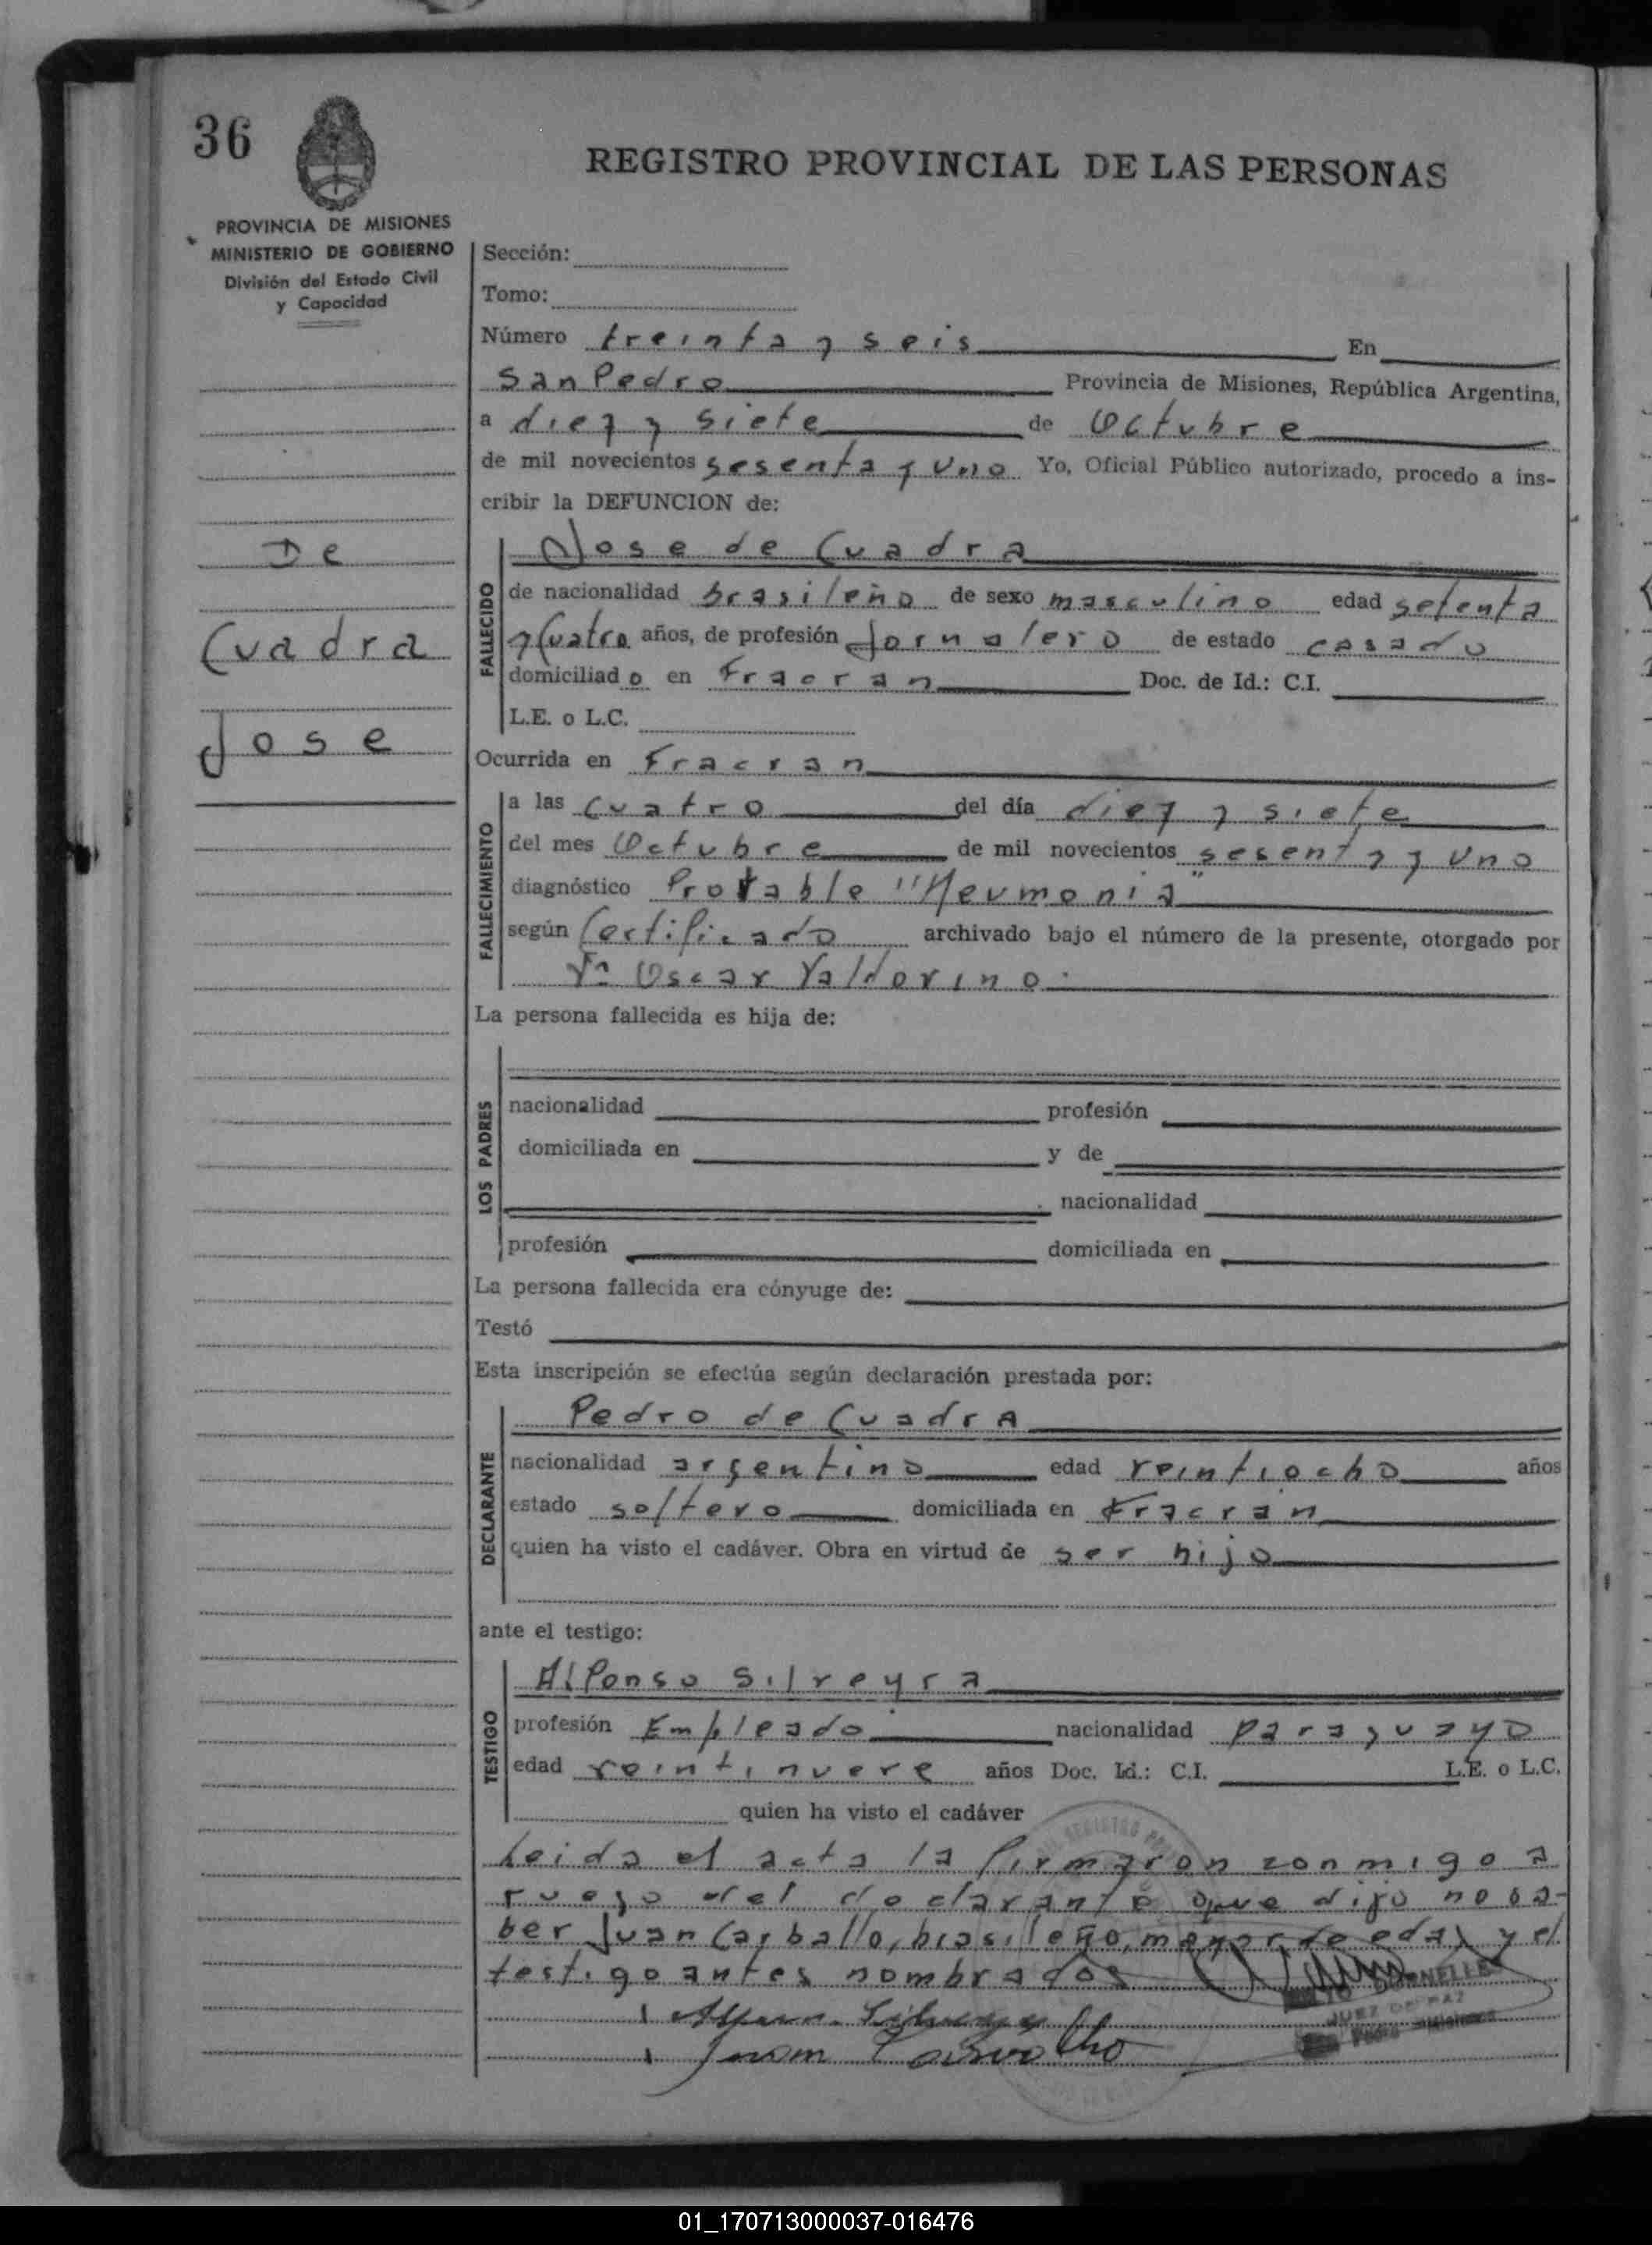 36
REGISTRO PROVINCIAL DE LAS PERSONAS
PROVINCIA DE MISIONES
MINISTERIO DE GOBIERNO
División del Estado Civil
y Capacidad
De
Cuadra
Jose
Sección:
Tomo:
Número treinta y seis En
San Pedro Provincia de Misiones, República Argentina,
a diez y siete de Octubre
de mil novecientos sesenta y uno Yo, Oficial Público autorizado, procedo a ins-
cribir la DEFUNCION de:
FALLECIDO
Jose de Cuadra
de nacionalidad brasileño de sexo masculino edad setenta
y cuatro años, de profesión Jornalero de estado casado
domiciliado en Fracran Doc. de Id.: C.I.
L.E. o L.C.
Ocurrida en Fracran
FALLECIMIENTO
a las cuatro del día diez y siete
del mes Octubre de mil novecientos sesenta y uno
diagnóstico Probable "Neumonia"
según Certificado archivado bajo el número de la presente, otorgado por
Oscar Valdovino.
La persona fallecida es hija de:
LOS PADRES
nacionalidad profesión
domiciliada en y de
nacionalidad
profesión domiciliada en
La persona fallecida era cónyuge de:
Testó
Esta inscripción se efectúa según declaración prestada por:
DECLARANTE
Pedro de Cuadra
nacionalidad argentino edad veintiocho años
estado soltero domiciliada en Fracran
quien ha visto el cadáver. Obra en virtud de ser hijo
ante el testigo:
TESTIGO
Alfonso Silveyra
profesión Empleado nacionalidad paraguayo
edad veintinueve años Doc. Id.: C.I. L.E. o L.C.
quien ha visto el cadáver
Leida el acta la firmaron conmigo a
ruego del declarante que dijo no sa-
ber Juan Carballo, brasileño, mayor de edad y el
testigo antes nombrados
JUEZ DE PAZ
01_170713000037-016476